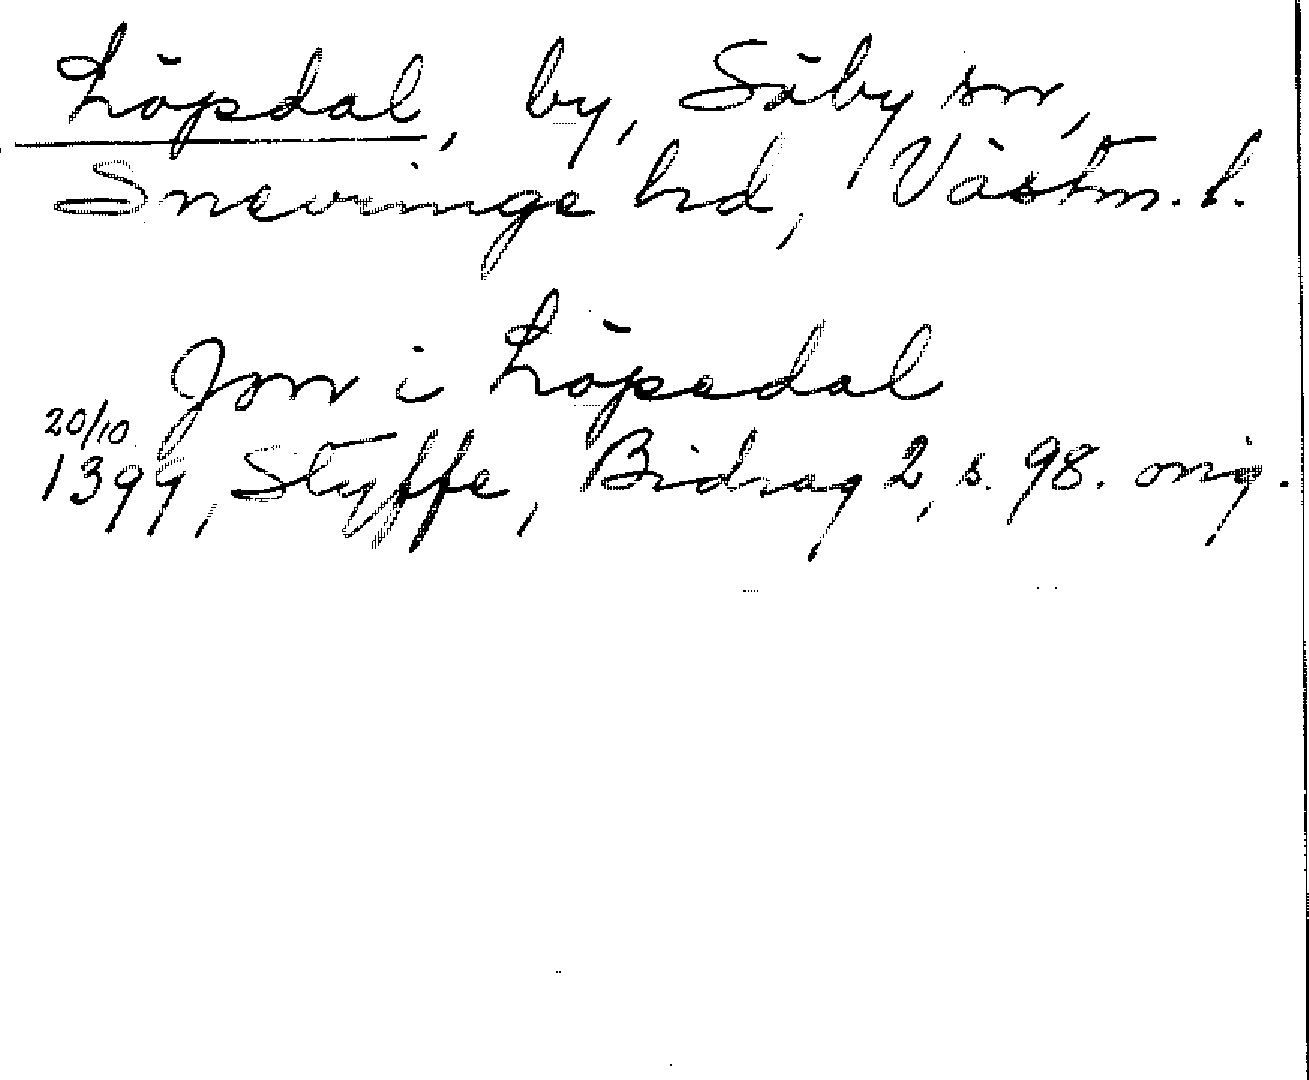 Löpsdal, by, Säby sn,
Snevringe hd, Västm. l.
Jon i Löpsdal
20/10
1399, Styffe, Bidrag 2, s. 98. orig.